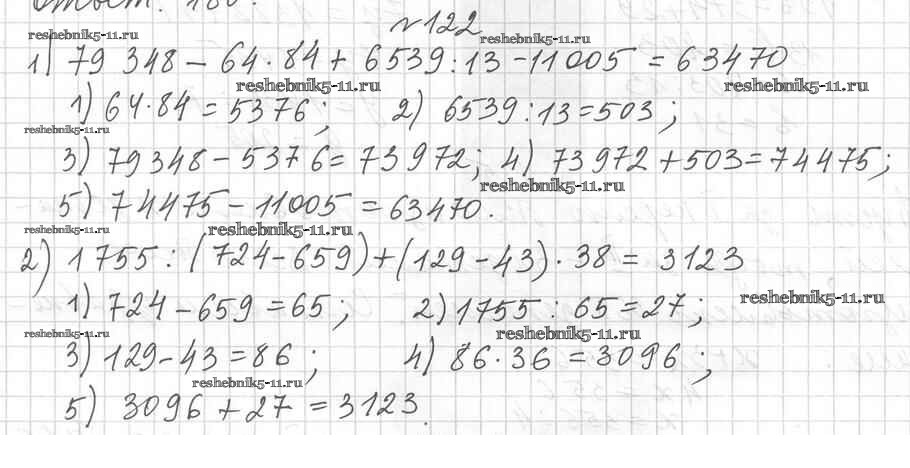 Ответ: 180.
№122
reshebnik5-11.ru reshebnik5-11.ru
1) 79 348 - 64 · 84 + 6539 : 13 - 11005 = 63470
reshebnik5-11.ru reshebnik5-11.ru
1) 64 · 84 = 5376; 2) 6539 : 13 = 503;
reshebnik5-11.ru
3) 79348 - 5376 = 73972; 4) 73972 + 503 = 74475;
reshebnik5-11.ru
5) 74475 - 11005 = 63470.
reshebnik5-11.ru reshebnik5-11.ru
2) 1755 : (724 - 659) + (129 - 43) · 38 = 3123
1) 724 - 659 = 65; 2) 1755 : 65 = 27; reshebnik5-11.ru
reshebnik5-11.ru reshebnik5-11.ru
3) 129 - 43 = 86; 4) 86 · 36 = 3096;
reshebnik5-11.ru
5) 3096 + 27 = 3123.